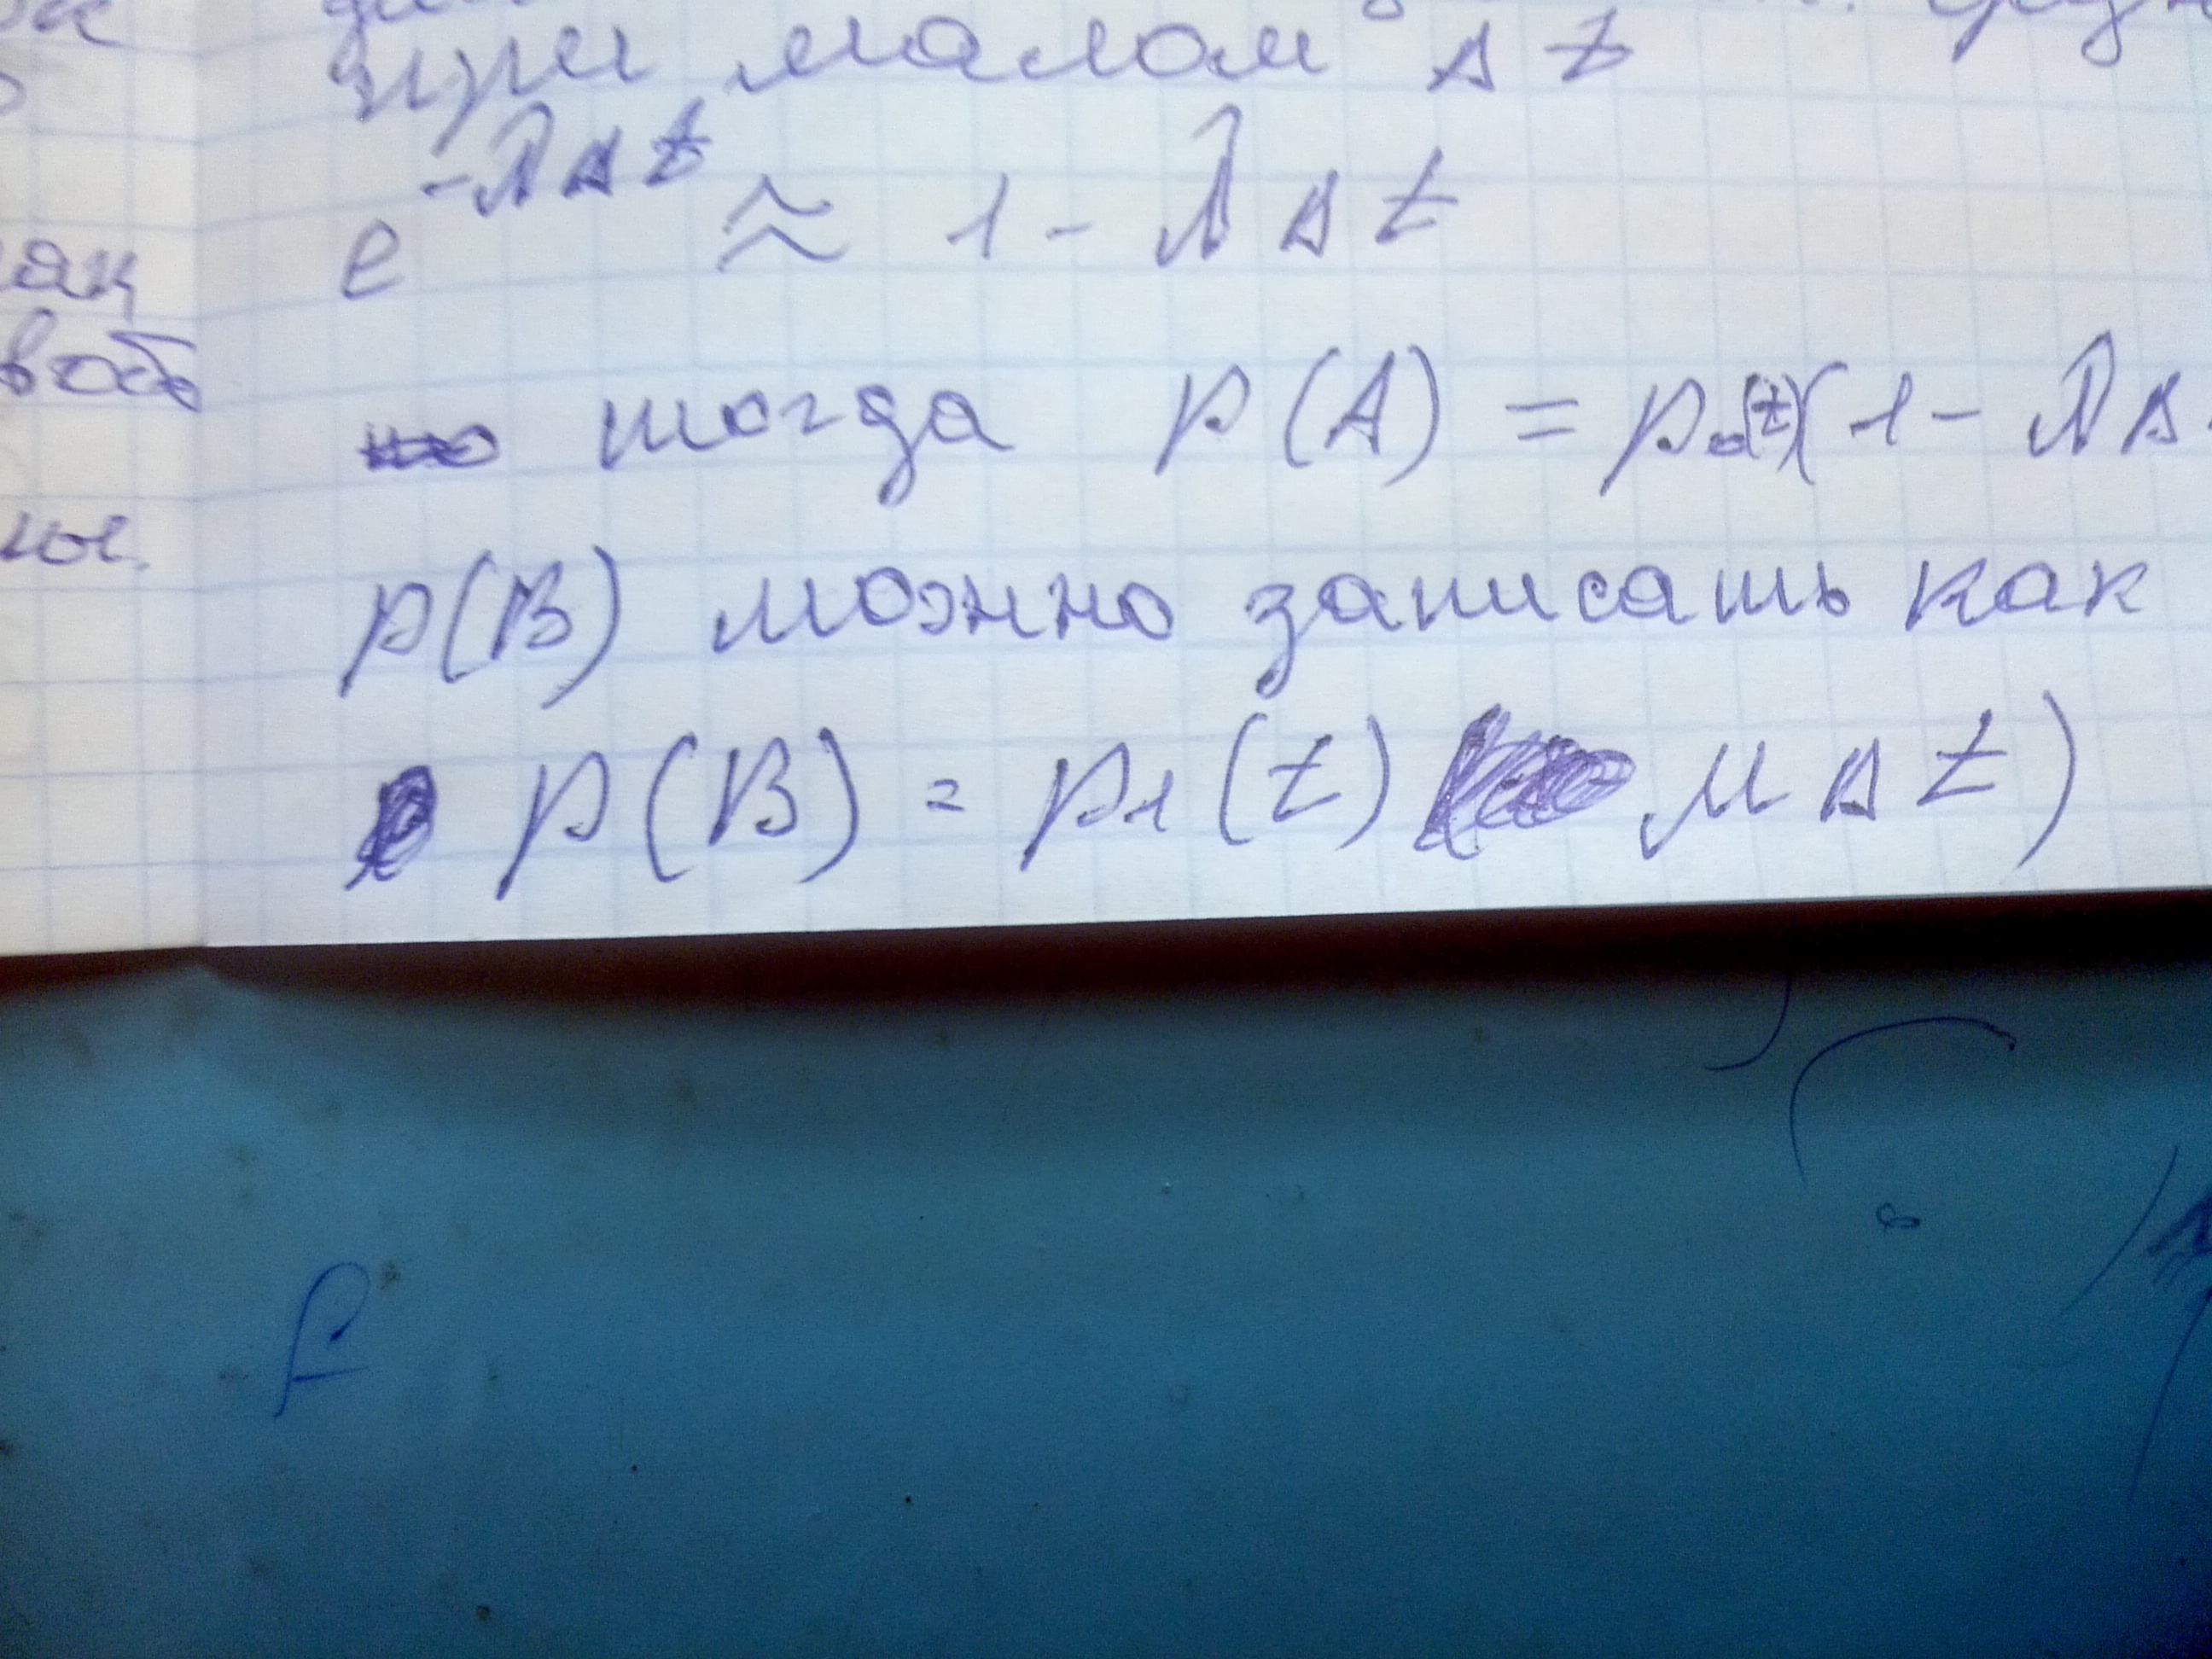 при малом Δt
e^{-λΔt} ≈ 1 - λΔt
тогда p(A) = p₀(t)(1 - λΔ
p(B) можно записать как
p(B) = p₁(t) μΔt)